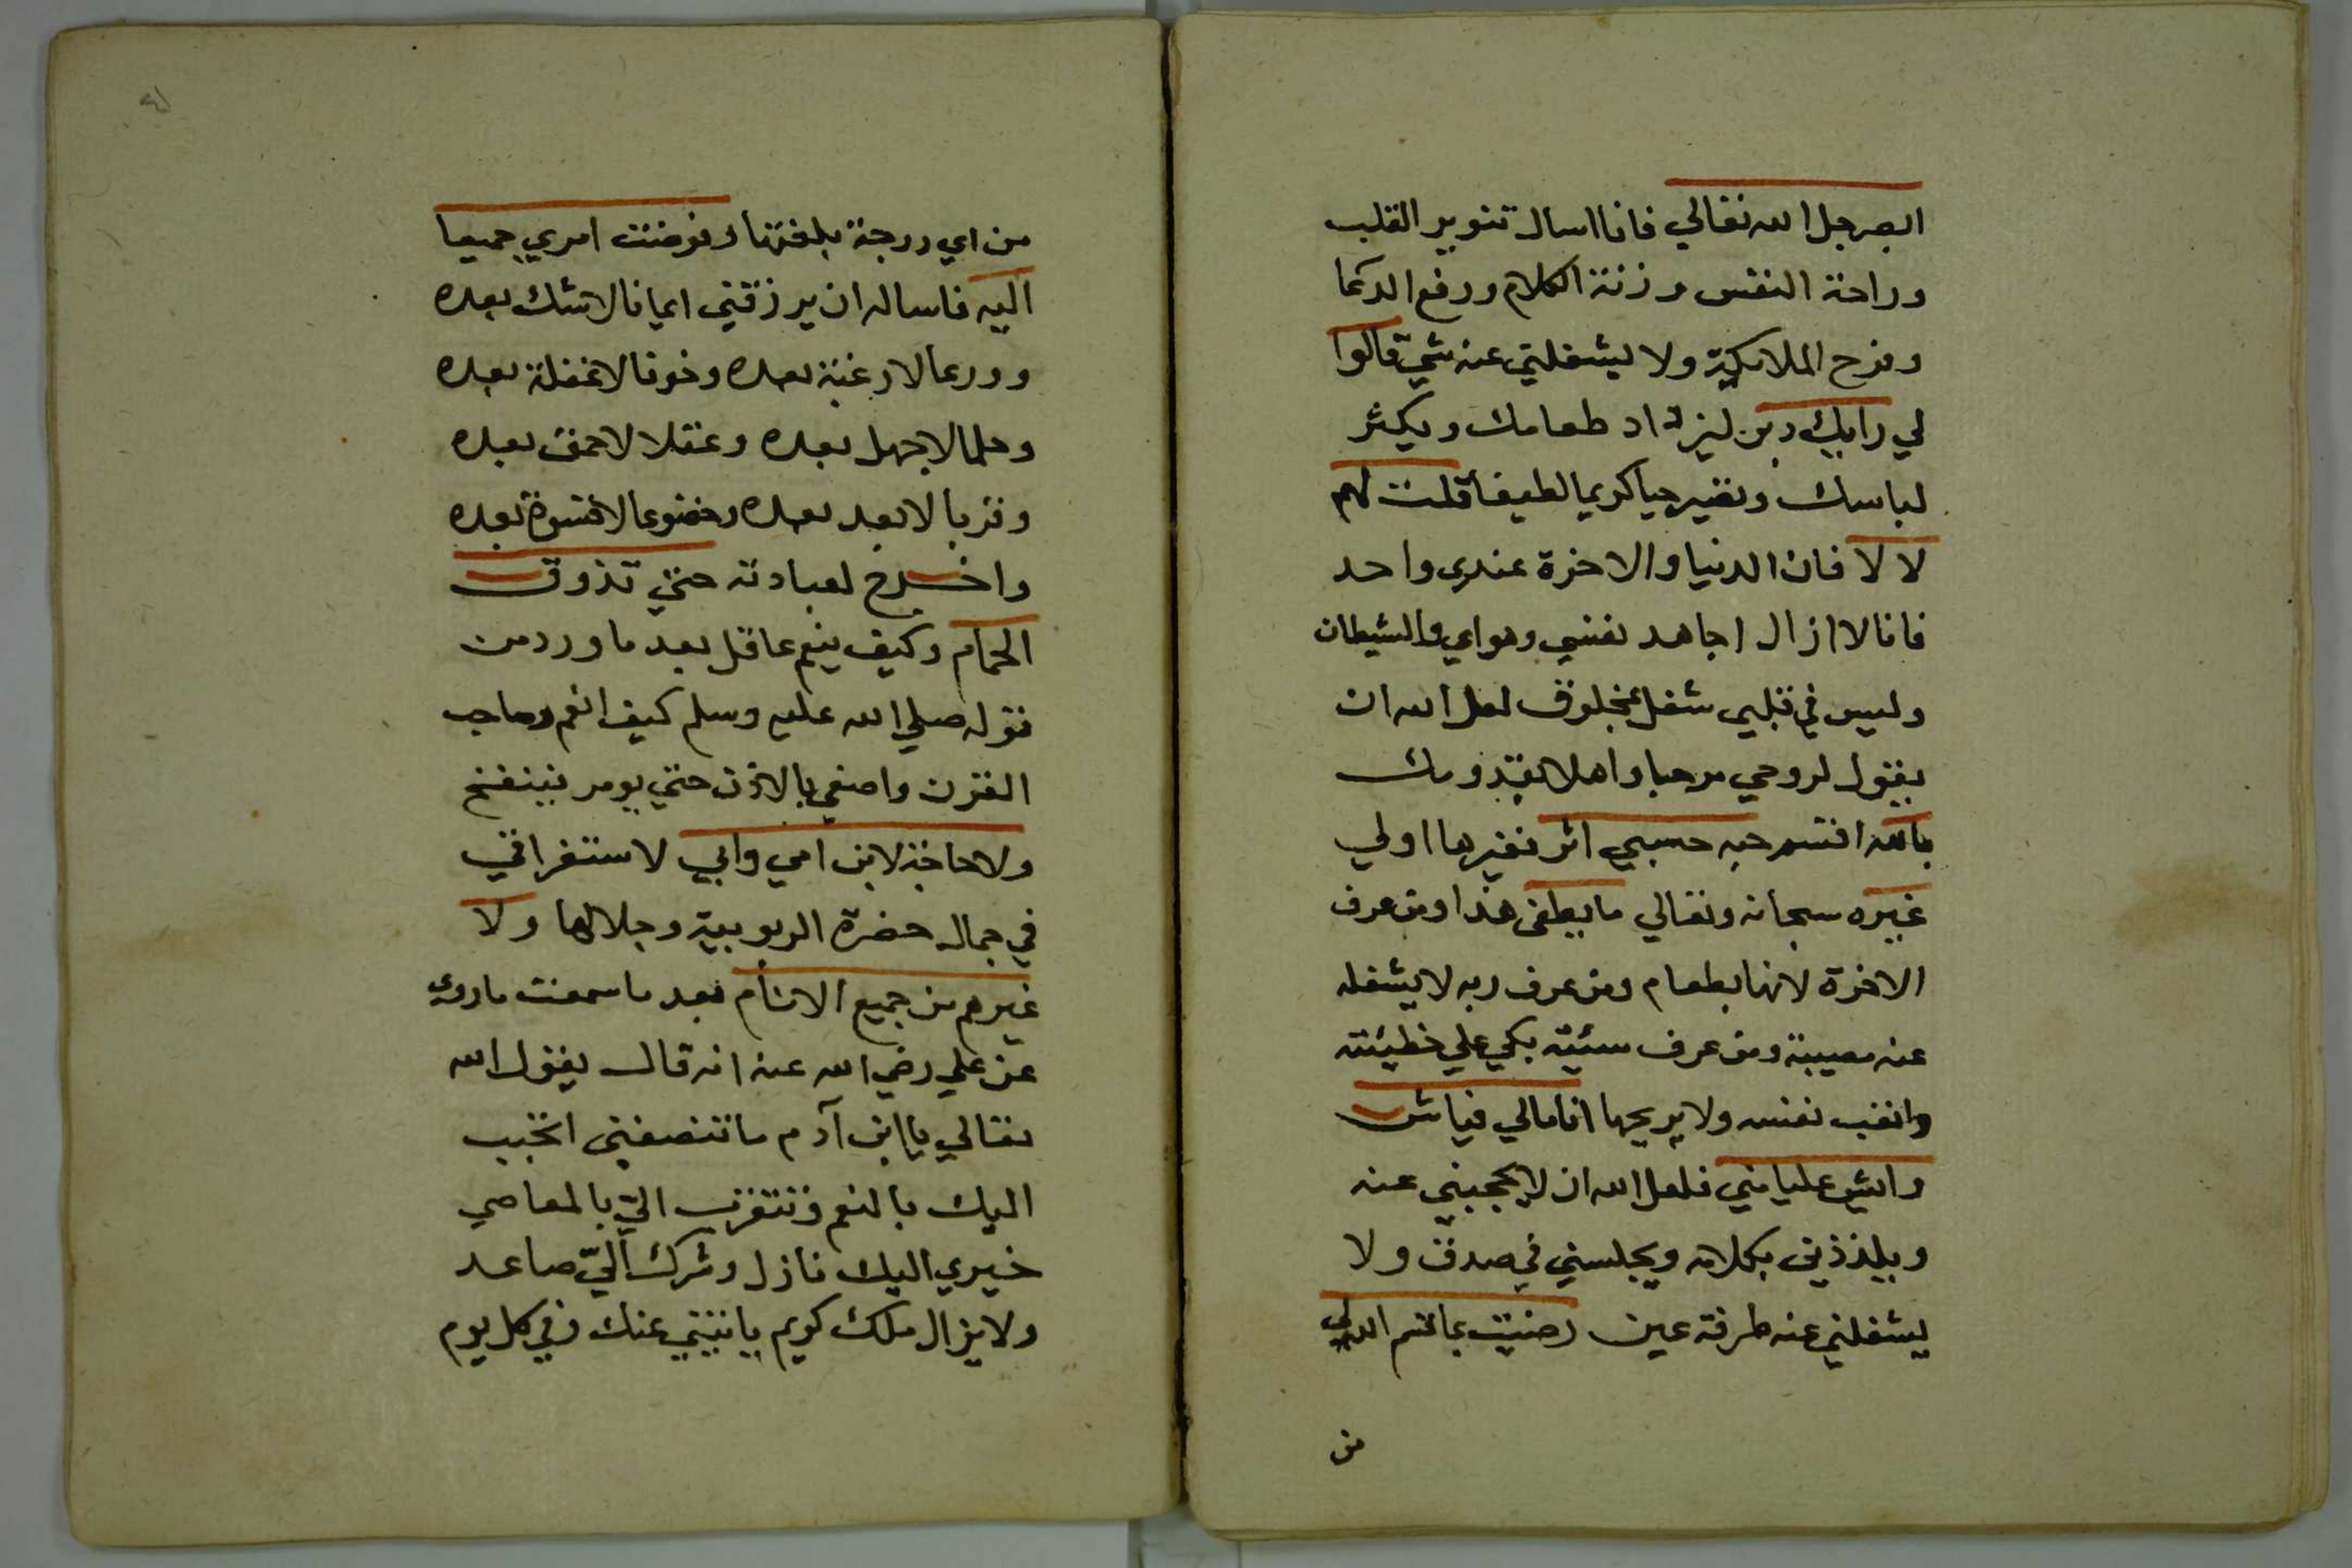 البصر جل الله تعالي فانا اسال تنوير القلب
وراحة النفس ورزنة الكلام ورفع الدكما
وفرح الملايكة ولا يشغلني عنه شي قالوا
لي رايك دبن ليزداد طعامك ويكثر
لباسك وتصير حيا كريما لطيفا قلت لهم
لا لا فان الدنيا والاخرة عندي واحد
فانا لا ازال اجاهد نفسي وهواي والشيطان
وليس في قلبي شغل بمخلوق لعل الله ان
يقول لروحي مرحبا واهلا بقدومك
بالله اقتسم حبه حسبي اثر نغيرها اولي
غيره سبحانه وتعالي ما يطغى هذا ومن عرف
الاخرة لانها بطعام ومن عرف ربه لا يشغله
عنه مصيبة ومن عرف سيئته بكي علي خطيئته
واتعب نفسه ولا يريحها انا مالي فياش
وايش عليا مني فلعل الله ان لا يحجبني عنه
ويلذذني بكلامه ويجلسني في صدق ولا
يشغلني عنه طرفة عين رضيت بما قسم الله لي
من
من اي درجة بلغتها وفوضت امري جميعا
اليه فاساله ان يرزقني ايمانا لا شك بعده
وورعا لا رغبة بعده وخوفا لا غفلة بعده
وحلما لا جهل بعده وعقلا لا حمق بعده
وقربا لا بعد بعده وخضوعا لا قسوة بعده
واخـرج لعبادته حتي تذوق
الحمام وكيف ينعم عاقل بعد ما ورد من
قوله صلي الله عليه وسلم كيف انعم وصاحب
القرن واصغي بالاذن حتي يومر فينفخ
ولا حاجة لابن امي وابي لاستغراقي
في جمال حضرة الربوبية وجلالها ولا
غيرهم من جميع الانام فبعد ما سمعت ما روي
عن علي رضي الله عنه انه قال يقول الله
تعالي يا ابن آدم ما تنصفني اتحبب
اليك بالنعم وتتقرب اليّ بالمعاصي
خيري اليك نازل وشرك اليّ صاعد
ولا يزال ملك كريم ياتيني عنك في كل يوم